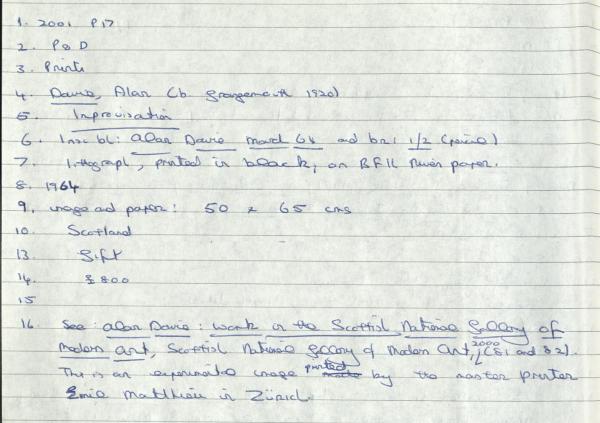 1. 2001 P17
2. P&D
3. Prints
4. Davie, Alan (b. Grangemouth 1920)
5. Improvisation
6. Insc bl: alan Davie march 64 and br: 1/2 (pencil)
7. lithograph, printed in black, on BFK Rives paper.
8. 1964
9. image and paper: 50 x 65 cms
10. Scotland
13. Gift
14. £800
15
16. See: alan Davie: work in the Scottish National Gallery of
modern art, Scottish National Gallery of modern art, 2000 (81 and 82).
This is an experimental image printed by the master printer
Emil Matthieu in Zürich.